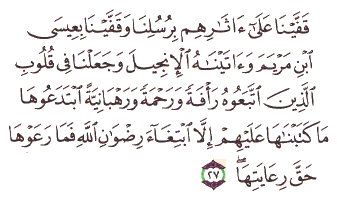 قَفَّيْنَا عَلَىٰٓ ءَاثَٰرِهِم بِرُسُلِنَا وَقَفَّيْنَا بِعِيسَى
ٱبْنِ مَرْيَمَ وَءَاتَيْنَٰهُ ٱلْإِنجِيلَ وَجَعَلْنَا فِى قُلُوبِ
ٱلَّذِينَ ٱتَّبَعُوهُ رَأْفَةً وَرَحْمَةً وَرَهْبَانِيَّةً ٱبْتَدَعُوهَا
مَا كَتَبْنَٰهَا عَلَيْهِمْ إِلَّا ٱبْتِغَآءَ رِضْوَٰنِ ٱللَّهِ فَمَا رَعَوْهَا
حَقَّ رِعَايَتِهَا ۖ ٢٧